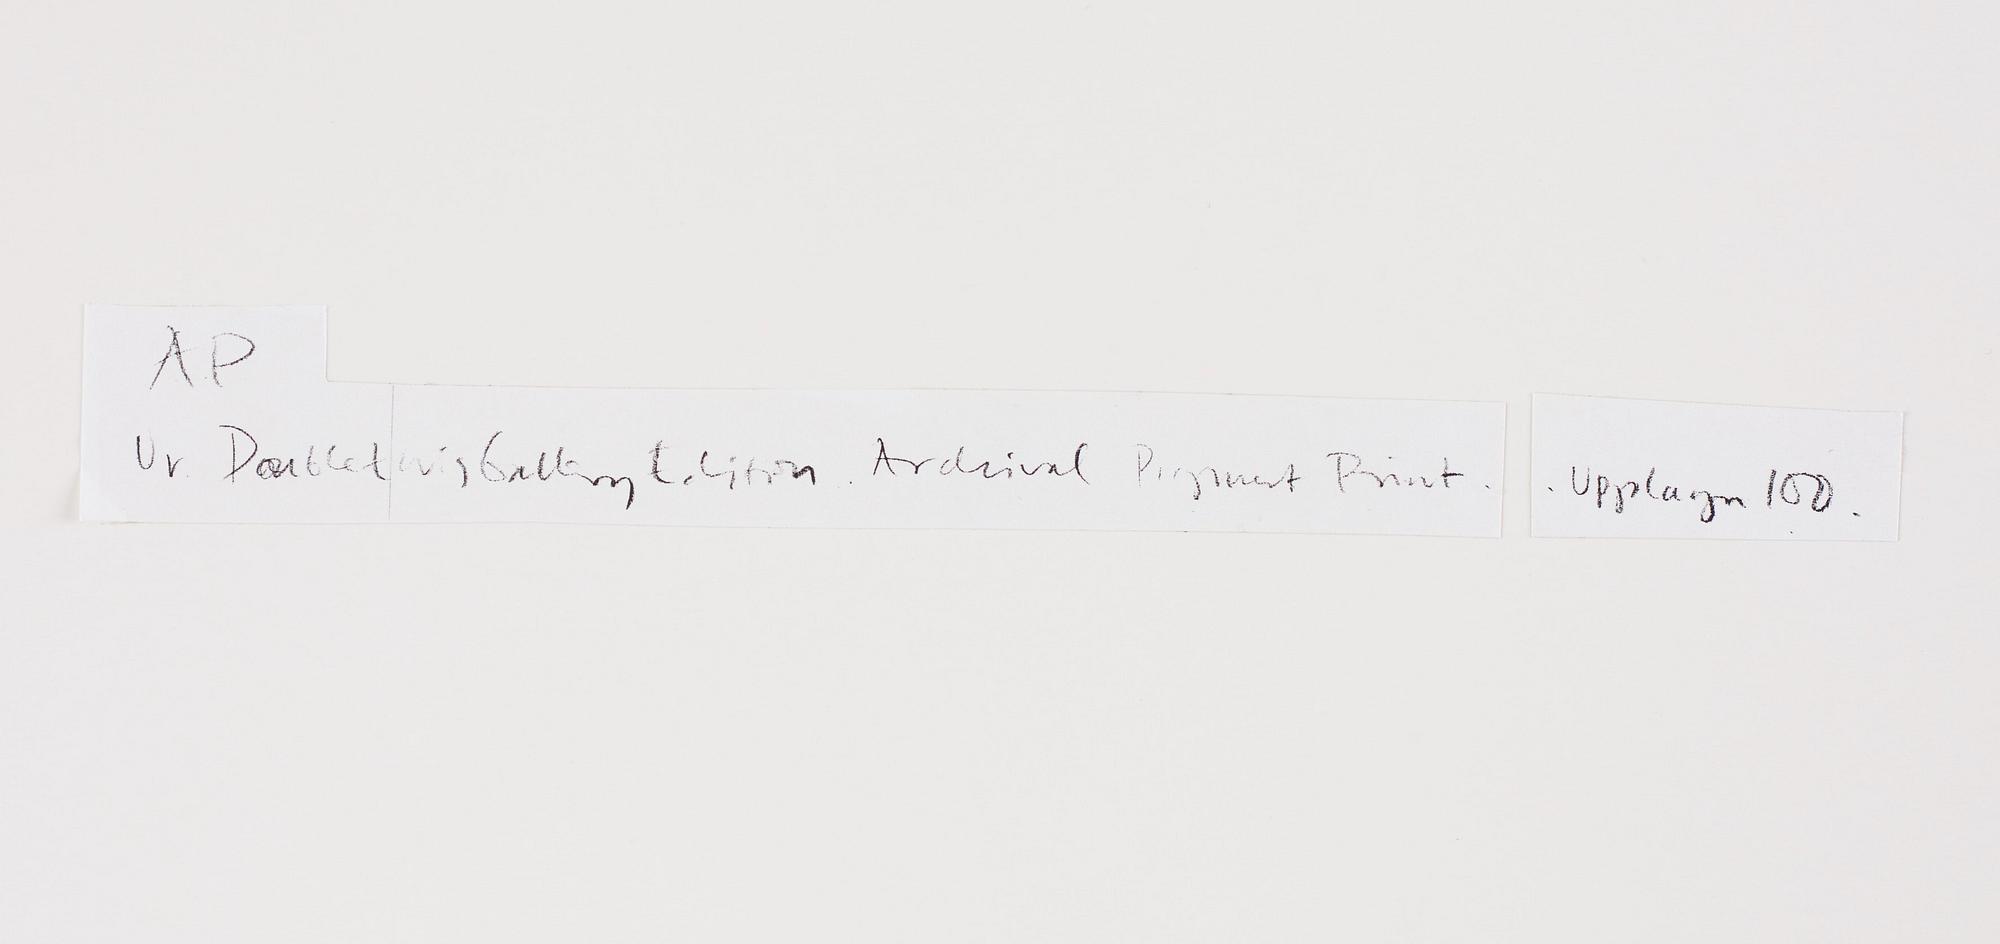 AP
Ur. Gallery Edition. Archival Pigment Print. . Upplagan 100.